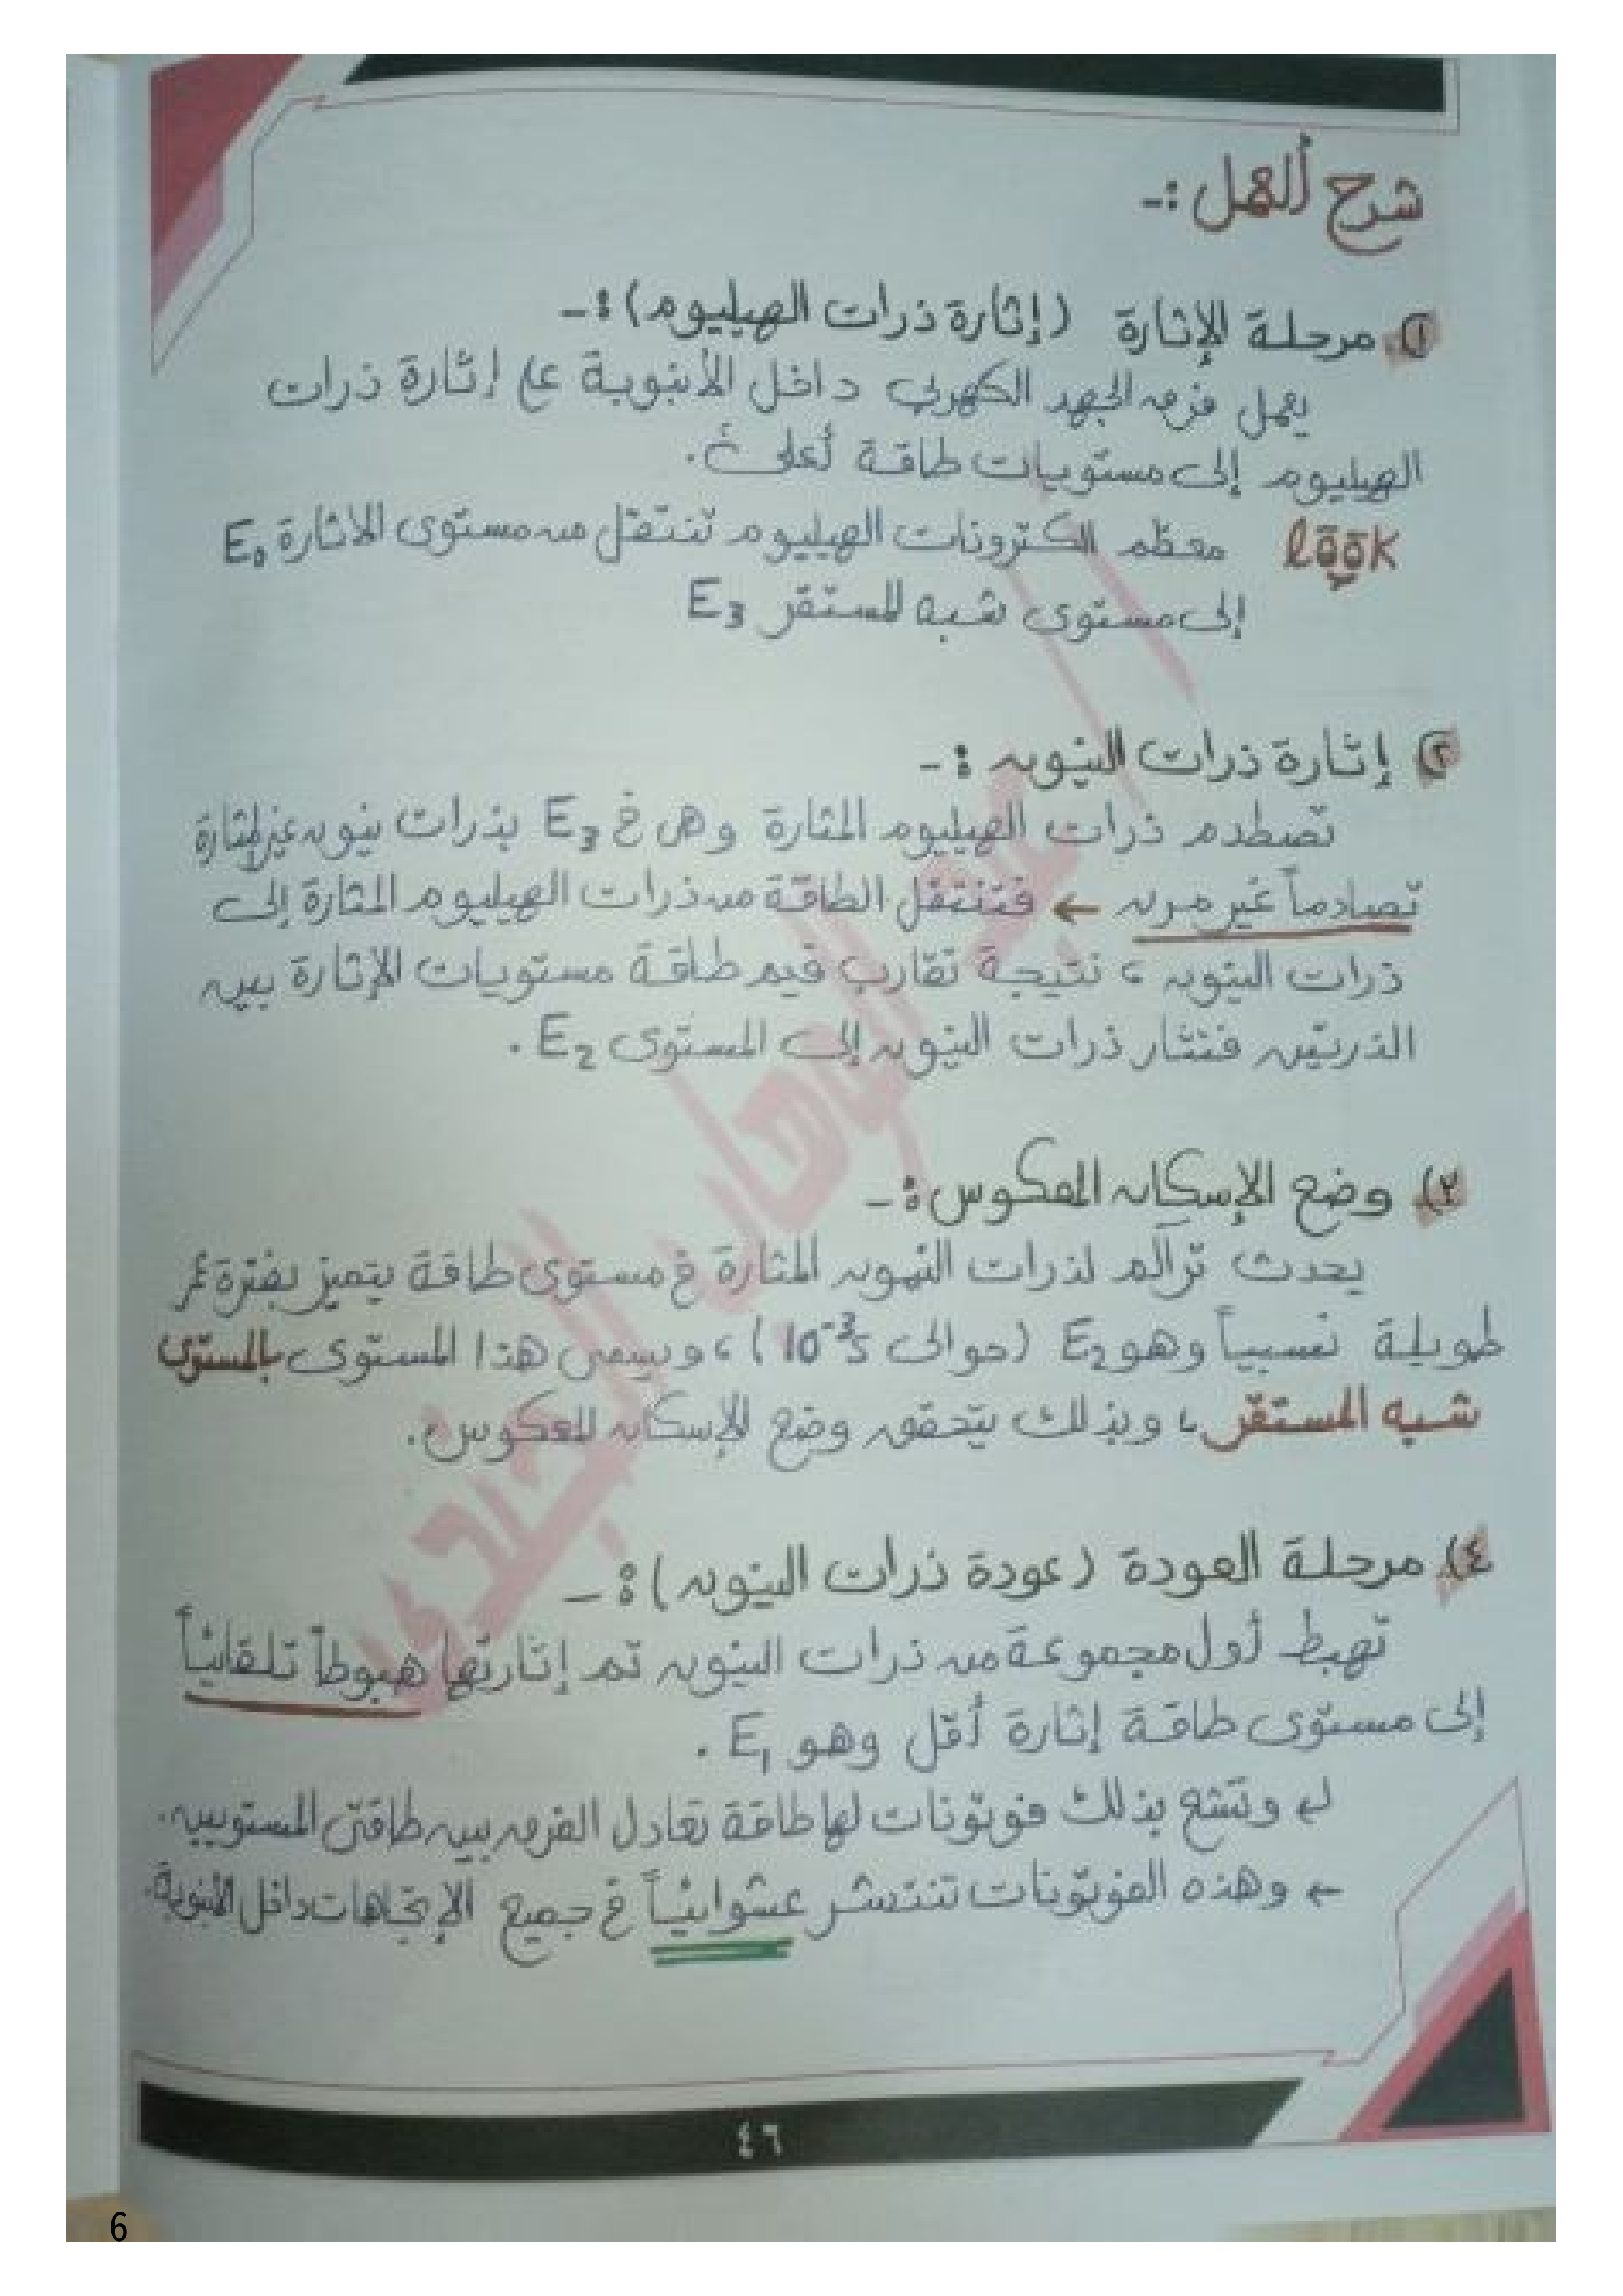 شرح العمل :-
① مرحلة الإثارة (إثارة ذرات الهيليوم) :-
يعمل فرق الجهد الكهربي داخل الأنبوبة على إثارة ذرات
الهيليوم إلى مستويات طاقة أعلى .
look معظم الكترونات الهيليوم تنتقل من مستوى الاثارة E₀
إلى مستوى شبه المستقر E₃
② إثارة ذرات النيون :-
تصطدم ذرات الهيليوم المثارة وهى فى E₃ بذرات نيون غير المثارة
تصادماً غير مرن ← فتنتقل الطاقة من ذرات الهيليوم المثارة إلى
ذرات النيون ، نتيجة تقارب قيم طاقة مستويات الإثارة بين
الذرتين فتثار ذرات النيون إلى المستوى E₂ .
٣) وضع الإسكان المعكوس :-
يحدث تراكم لذرات النيون المثارة فى مستوى طاقة يتميز بفترة عمر
طويلة نسبياً وهو E₂ (حوالى 10⁻³s) ، ويسمى هذا المستوى بالمستوى
شبه المستقر ، وبذلك يتحقق وضع الإسكان المعكوس .
٤) مرحلة العودة (عودة ذرات النيون) :-
تهبط أول مجموعة من ذرات النيون تم إثارتها هبوطاً تلقائياً
إلى مستوى طاقة إثارة أقل وهو E₁ .
وتشع بذلك فوتونات لها طاقة تعادل الفرق بين طاقتى المستويين .
← وهذه الفوتونات تنتشر عشوائياً فى جميع الإتجاهات داخل الأنبوبة .
٤٦
6